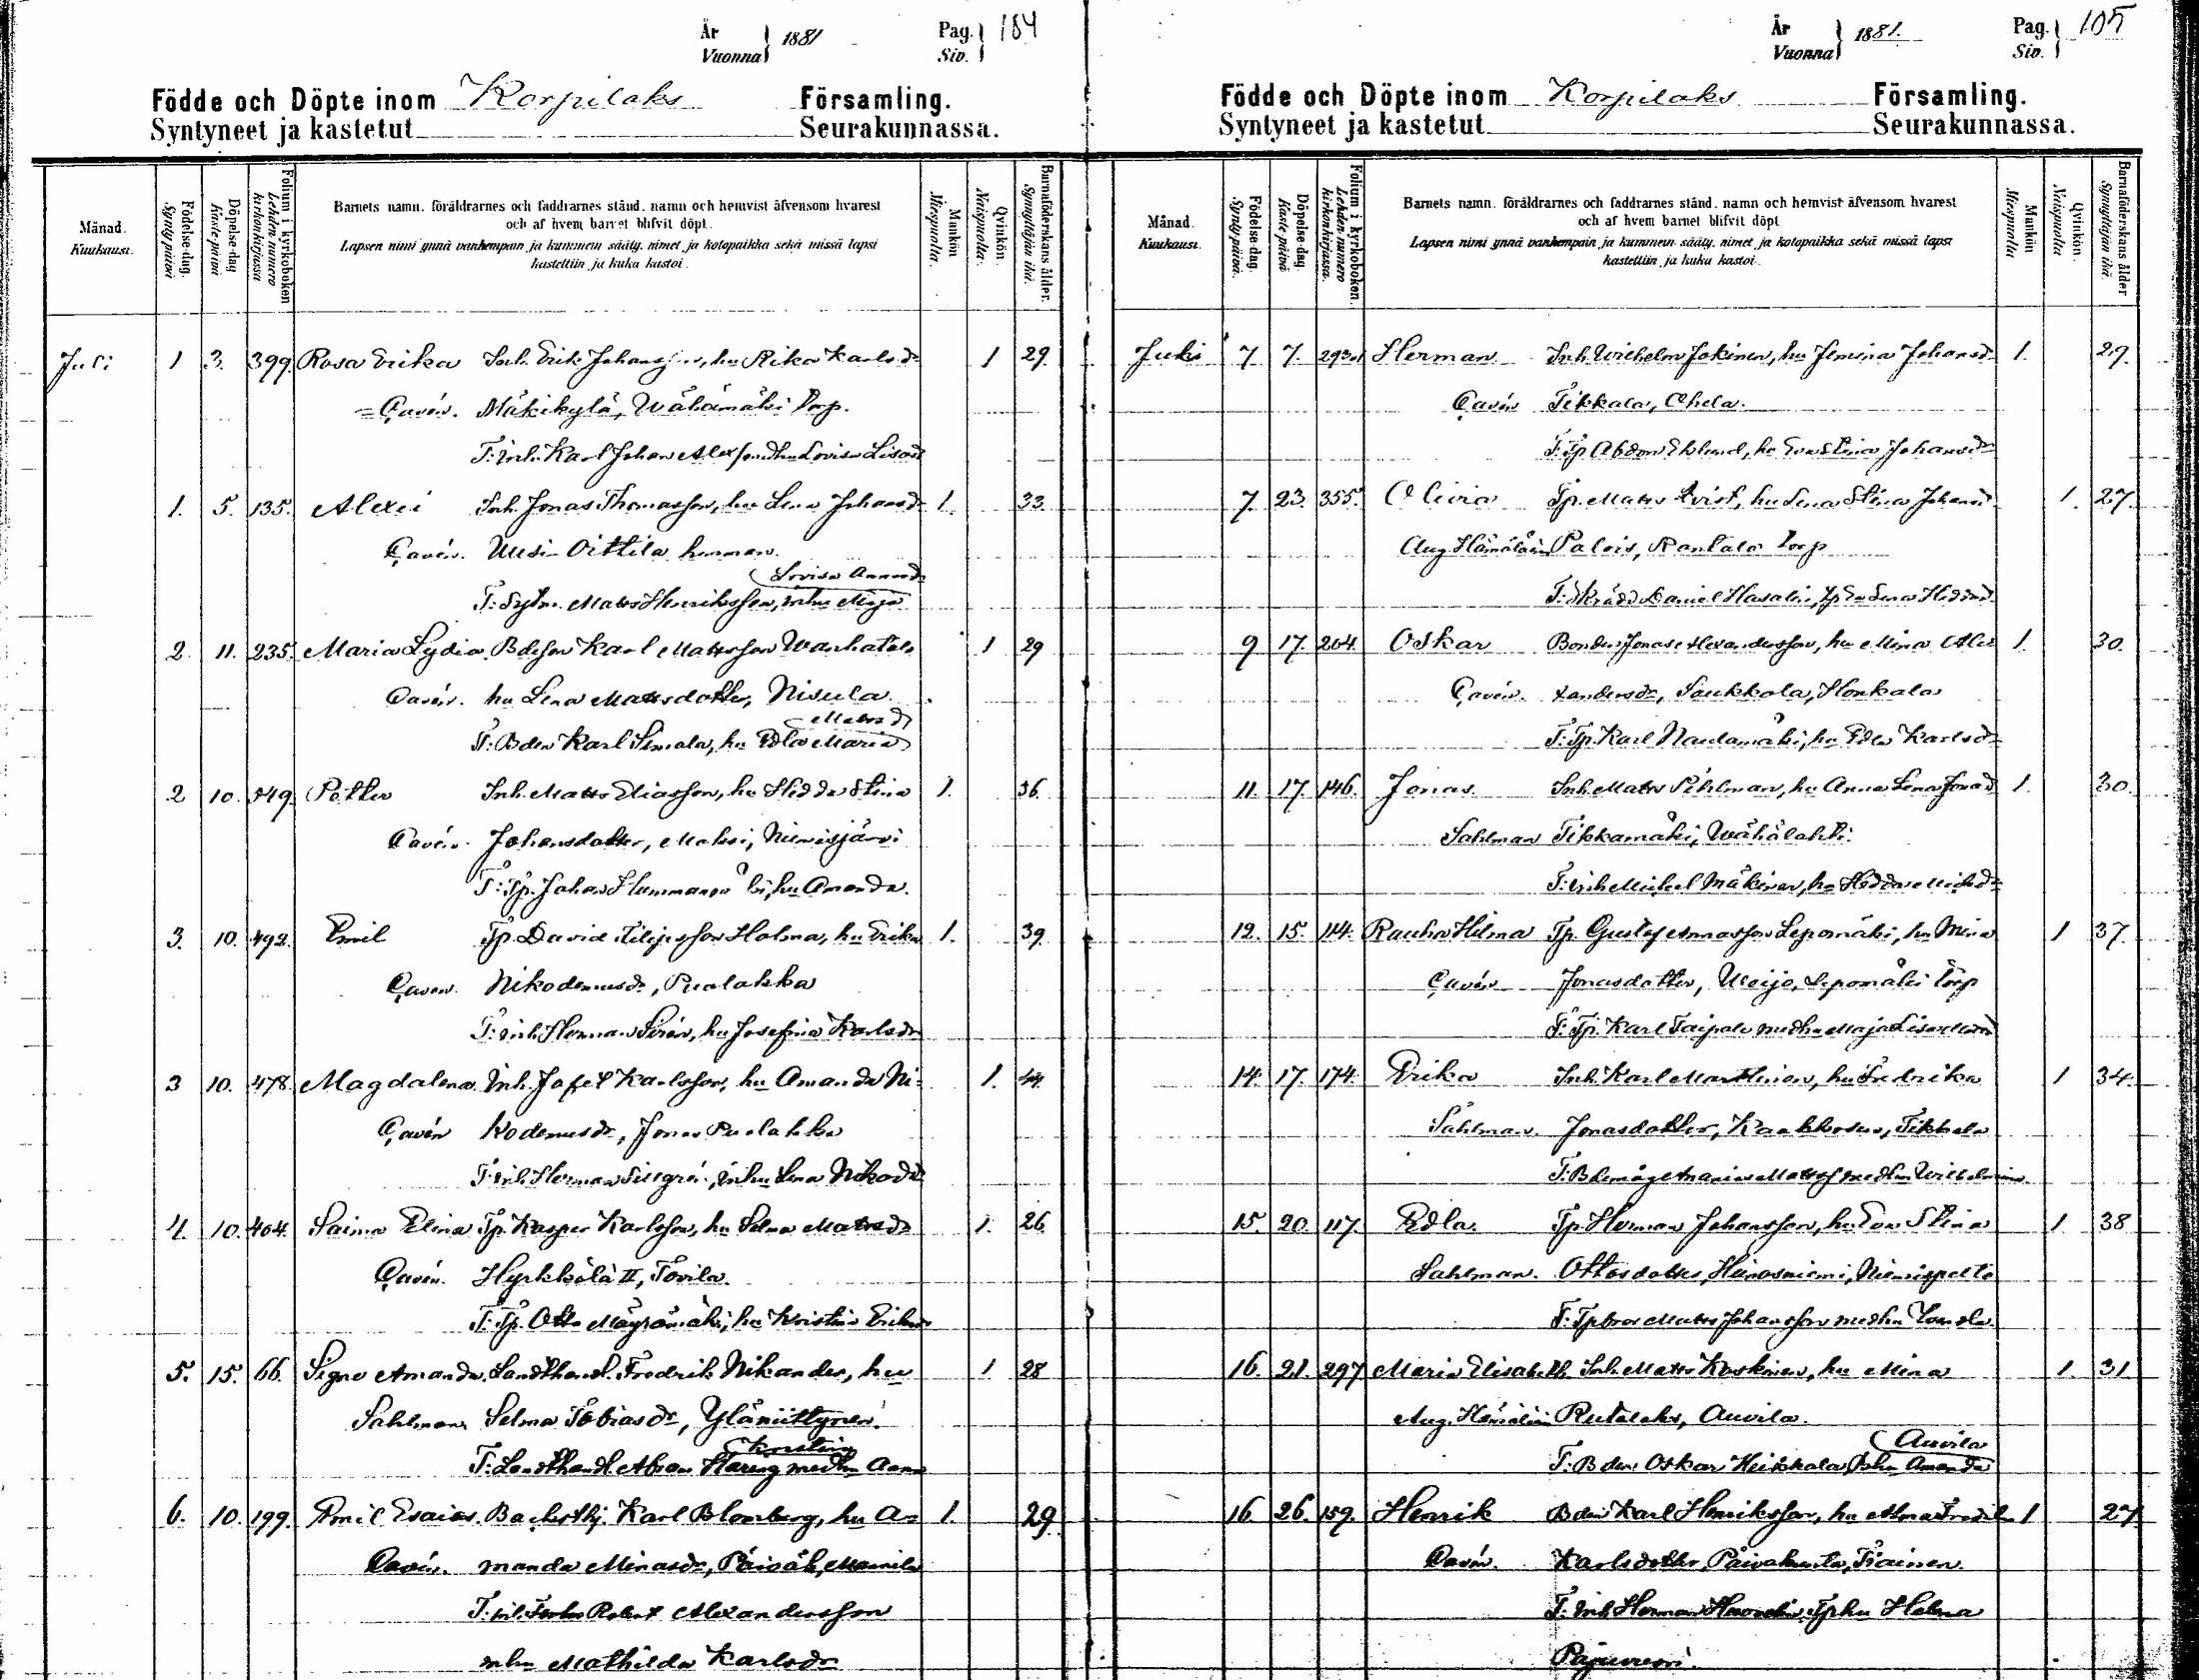 År
Vuonna } 1881
Pag.
Siv. } 184
Födde och Döpte inom Korpilaks Församling.
Syntyneet ja kastetut Seurakunnassa.
Månad.
Kuukausi.
Födelse-dag.
Synty päivä
Döpelse-dag
Kaste päivä
Folium i kyrkoboken
Lehden numero kirkonkirjassa
Barnets namn, föräldrarnes och faddrarnes stånd, namn och hemvist äfvensom hvarest
och af hvem barnet blifvit döpt.
Lapsen nimi ynnä vanhempain ja kummein sääty, nimet ja kotopaikka sekä missä lapsi
kastettiin ja kuka kastoi.
Mankön
Miespuolia.
Qvinkön.
Naispuolia.
Barnaföderskans ålder.
Synnyttäjän ikä.
Juli 1 3. 399. Rosa Erika Inh. Erik Johansson, hu Rika Karlsdr 1 29.
Cavén. Mäkikylä, Wähämäki torp.
T: Inh. Karl Johan Alexson dhu Lovisa Lisad
1. 5. 135. Alexii Inh. Jonas Thomasson, hu Lena Johansdr 1. 33.
Cavén. Uusi-Oittila hemman.
Lovisa Annasd.
T: Sytn. Matts Henriksson, inhu Maja
2. 11. 235. Maria Lydia. Bdeson Karl Mattsson Wanhatalo 1 29
Cavén. hu Lena Mattsdotter, Nisula
Mattsd
T: Bden Karl Simola, hu Edla Maria
2 10. 349. Petter Inh. Matts Eliasson, hu Hedda Stina 1. 36.
Cavén. Johansdotter, Mutasi, Niinisjärvi
T: Tp. Johan Hummanmäki, hu Amanda.
3. 10. 492. Emil Tp. David Filipsson Holma, hu Erika 1. 39.
Cavén. Nikodemusdr, Puolakka
T: inh Herman Sirén, hu Josefina Karlsdr
3 10. 478. Magdalena Inh. Jafet Karlsson, hu Amanda Ni- 1. 44.
Cavén kodemusdr, Jonas Puolakka
T: inh Herman Sillgrén, inhu Lena Nikodd
4. 10. 404. Saima Elina Tp. Kasper Karlsson, hu Selma Mattsdr 1. 26.
Cavén. Hyrkkölä II, Tovila.
T: Tp. Otto Mäyrämäki, hu Kristina Eriksdr
5. 15. 66. Signe Amanda. Landthandl. Fredrik Nikander, hu 1 28
Sahlman Selma Tobiasdr, Yläniittynen.
Kristina
T: Landthandl. Abram Haring medhu Anna
6. 10. 199. Emil Esaias. Backsthj. Karl Blomberg, hu A- 1. 29.
Cavén. manda Minasdr, Päisäk, Mannila
T: Robert Alexandersson
inhu Mathilda Karlsdr
År
Vuonna } 1881.
Pag.
Siv. } 105
Födde och Döpte inom Korpilaks Församling.
Syntyneet ja kastetut Seurakunnassa.
Månad.
Kuukausi.
Födelse-dag.
Synty päivä.
Döpelse-dag.
Kaste päivä
Folium i kyrkoboken.
Lehden numero kirkonkirjassa.
Barnets namn, föräldrarnes och faddrarnes stånd, namn och hemvist äfvensom hvarest
och af hvem barnet blifvit döpt
Lapsen nimi ynnä vanhempain ja kummein sääty, nimet ja kotopaikka sekä missä lapsi
kastettiin ja kuka kastoi.
Mankön
Miespuolia
Qvinkön.
Naispuolia
Barnaföderskans ålder
Synnyttäjän ikä.
Juli 7 7. 293. Herman Inh. Wilhelm Jokinen, hu Jemina Johansd 1. 29.
Cavén Tikkala, Ohela.
T: Tp Abdon Eklund, hu Eva Stina Johansd
7. 23. 355. Olivia Tp. Matts Kvist, hu Lena Stina Johansd 1. 27.
Aug. Hämäläin Palois, Rantala torp
T: Skrädd Daniel Hasali, Lena Heddad
9 17. 204. Oskar Bonden Jonas Alexandersson, hu Mina Alex 1. 30.
Cavén. xandersdr, Saukkola, Honkala
T: Tp. Karl Naulamäki, hu Edla Karlsdr
11. 17. 146. Jonas. Inh. Matts Pihlman, hu Anna Lena Jonasd 1. 30.
Sahlman Tikkamäki, Wähälahti.
T: inh Mickel Mäkinen, hu Hedda Mickelsdr
12. 15. 114. Rauha Hilma Tp. Gustaf Annasson Lepomäki, hu Mina 1 37.
Cavén Jonasdotter, Weijo, Lepomäki torp
T: Tp. Karl Taipale medhu Maja Lisa
14. 17. 174. Erika Inh. Karl Marttinen, hu Fredrika 1 34.
Sahlman. Jonasdotter, Kaakkosuo, Tikkala
T: Bdemåg Ananias Mattsson medhu Wilhelmina.
15. 20. 117. Edla. Tp. Herman Johansson, hu Eva Stina 1 38
Sahlman. Ottosdotter, Heinosniemi, Niinispelto
T: Tpbror Matts Johansson medhu
16. 21. 297 Maria Elisabeth. Inh. Matts Koskinen, hu Mina 1. 31
Aug. Hämäläin Rutalaks, Auvila.
Auvila
T: Bden Oskar Heikkala, Amanda
16. 26. 159. Henrik Bden Karl Henriksson, hu Alma Fredrika 1 27.
Cavén. Karlsdotter, Päiväkunta, Tiainen.
T: inh Herman Tphu Helena
Pajuvuori.